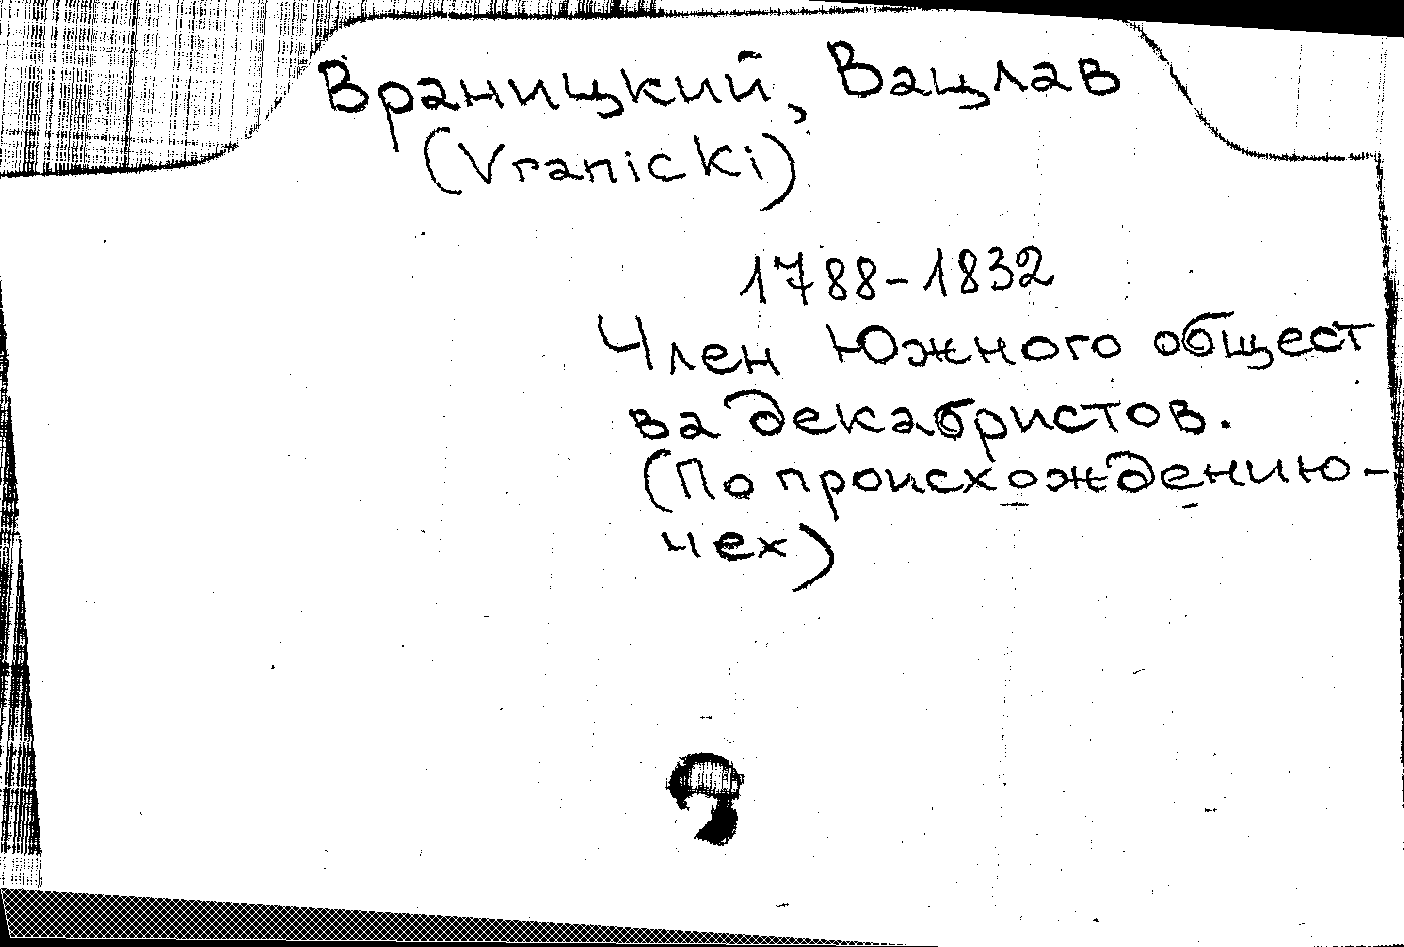 Враницкий, Вацлав
(Vranicki)
1788-1832
Член Южного общест
ва декабристов.
(По происхождению-
чех)